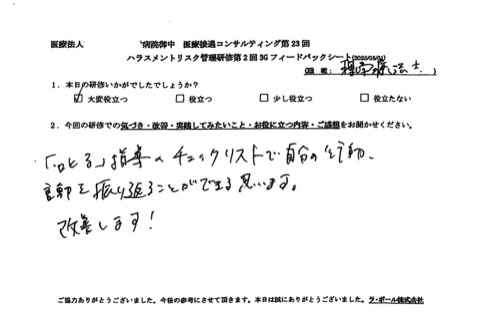 医療法人 病院御中 医療接遇コンサルティング第23回
ハラスメントリスク管理研修第2回3Gフィードバックシート(2025/05/01)
(職種: 理学療法士)
1.本日の研修いかがでしたでしょうか?
☑大変役立つ □役立つ □少し役立つ □役立たない
2.今回の研修での気づき・改善・実践してみたいこと・お役に立つ内容・ご感想をお聞かせください。
「叱る」指導のチェックリストで自分の行動、
言動を振り返ることができる思います。
改善します!
ご協力ありがとうございました。今後の参考にさせて頂きます。本日は誠にありがとうございました。ラ・ポール株式会社